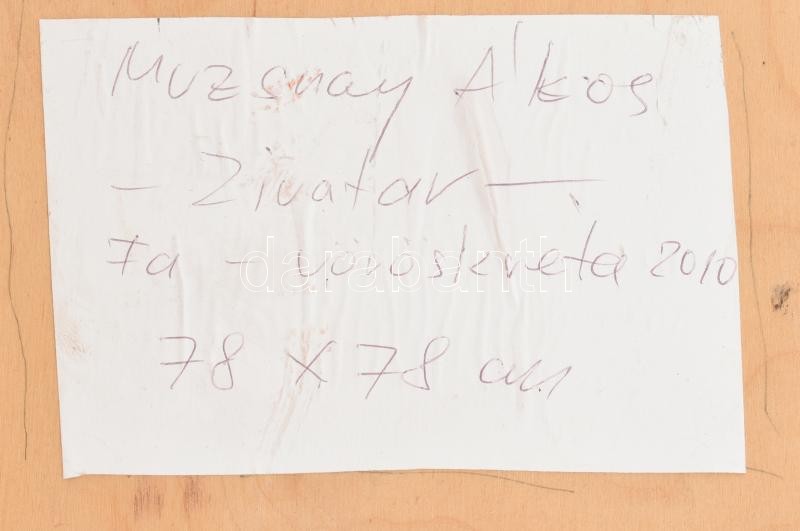 Muzsnay Ákos
- Zivatar -
Fa - vöröskréta 2010
78 x 78 cm
darabanth